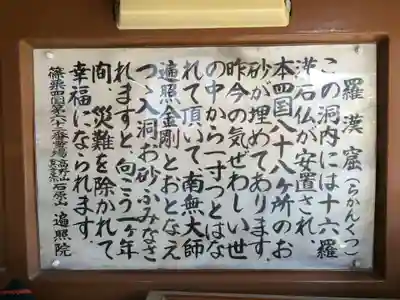 羅漢窟(らかんくつ)
この洞内には十六羅
漢石仏が安置され
本四国八十八ヶ所のお
砂が埋めてあります。
昨今の気ぜわしい世
の中から一寸っとはな
れて頂いて南無大師
遍照金剛とおとなえ
つゝ入洞お砂ふみなさ
れますと、向こう一ヶ年
間、災難を除かれて
幸福になられます。
篠栗四国第六十二番霊場 高野山真言宗 石原山 遍照院